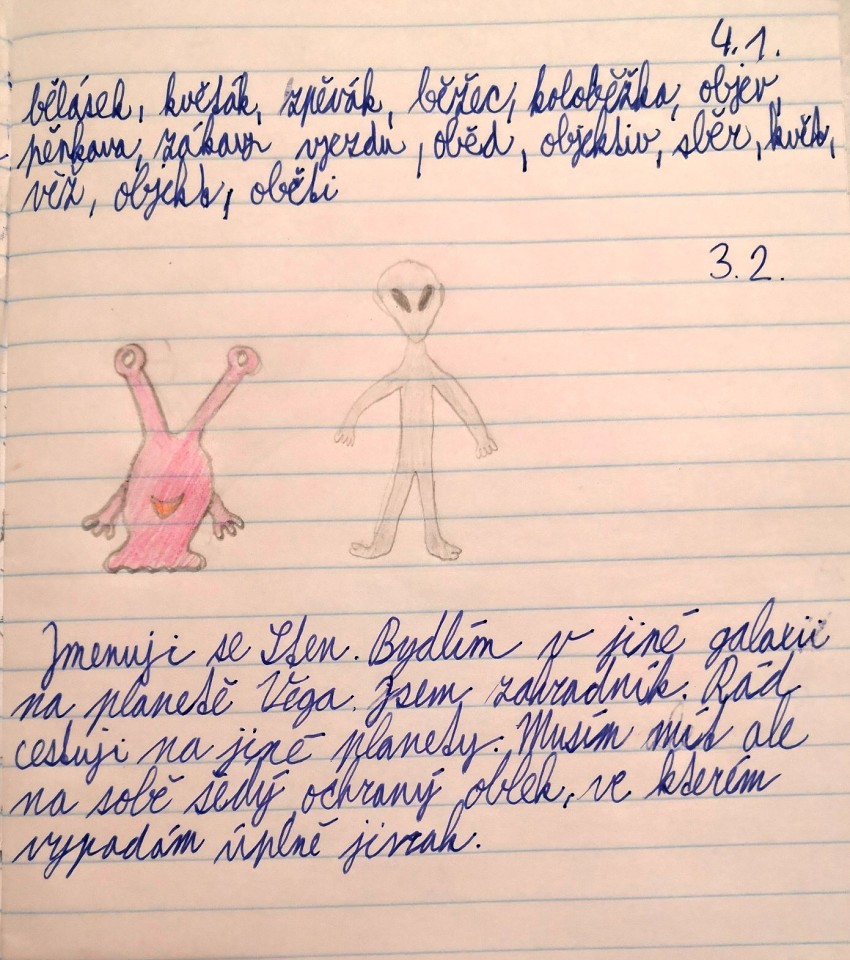 4.1.
bělásek, květák, zpěvák, běžec, koloběžka, objev,
pěnkava, zákaz vjezdu, oběd, objektiv, sběr, květ,
věž, objekt, oběti
3.2.
Jmenuji se Sten. Bydlím v jiné galaxii
na planetě Věga. Jsem zahradník. Rád
cestuji na jiné planety. Musím mít ale
na sobě šědý ochraný oblek, ve kterém
vypadám úplně jinak.